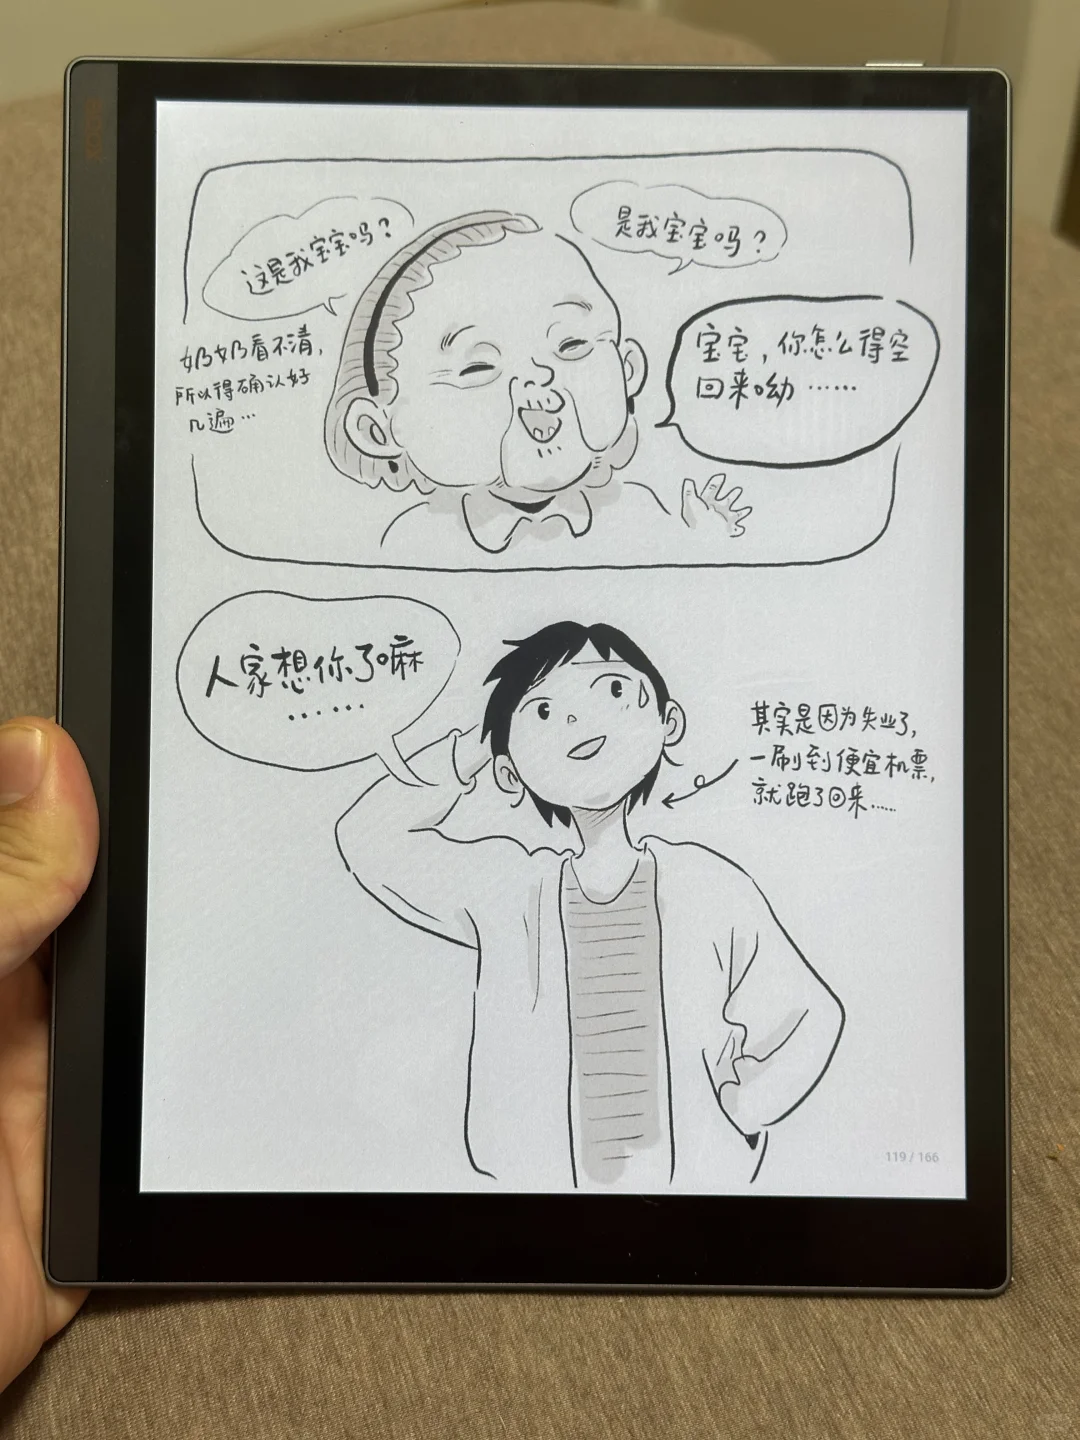 这是我宝宝吗？
是我宝宝吗？
奶奶看不清，
所以得确认好
几遍…
宝宝，你怎么得空
回来呦……
人家想你了嘛
……
其实是因为失业了，
一刷到便宜机票，
就跑了回来……
119 / 166